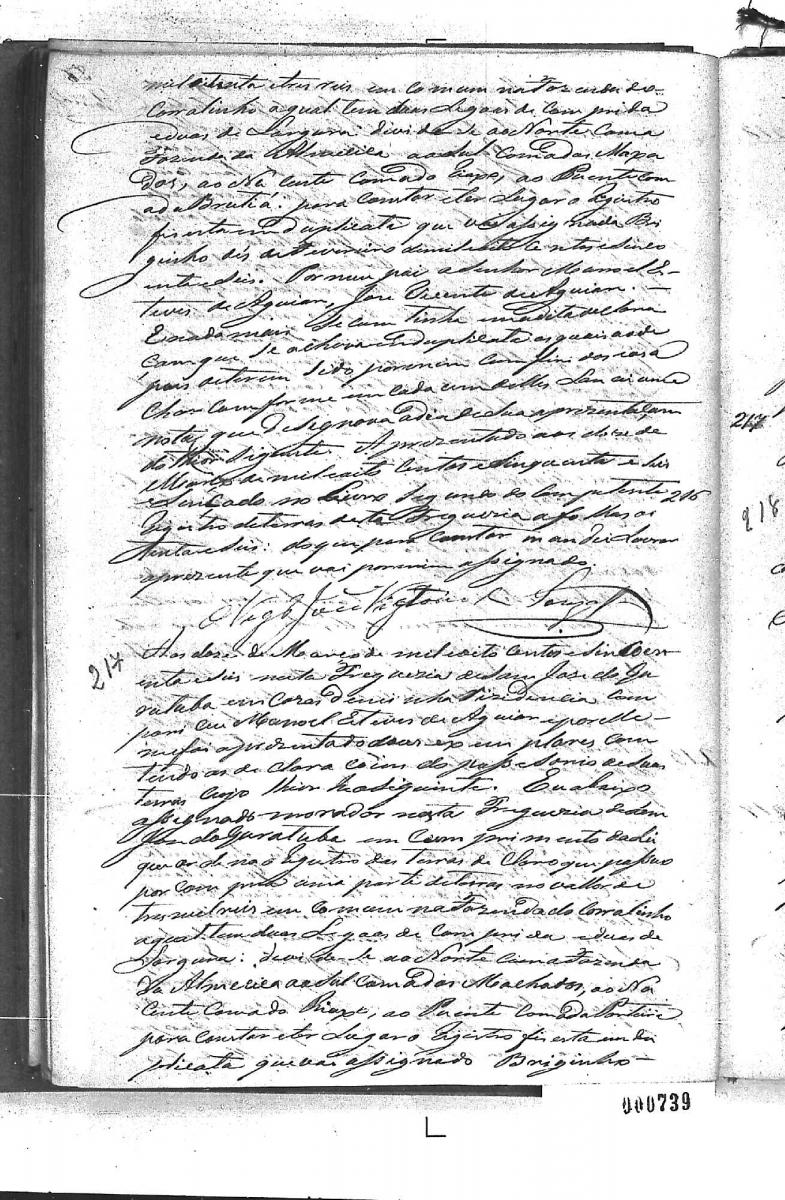 mil e trita e tres reis em Comum na Fazenda do
Corralinho a qual tem duas Legoas de Comprida
e duas de Largura: divide se ao Norte Com a
Fazenda da Almecica ao Sul Com a dos Maxa
dos, ao Na Cente Com a do, ao Puente Com
a da: para Constar e ter Lugar o Registro
fis esta em duplicata que vai assignada Bri
ginho dés de Fevereiro de mil oito Centos e Sinco
enta e Seis. Por meu pai o Senhor Manoel Es-
teves de Aguiar, José Vicente de Aguiar. -
E nada mais Se Com tinha em a dita declara
Cam que Se achava em duplicata as quais ao de
pois de terem Sido por mim Comferi dos
Chei Com forme em cada um delles Lan cei uma
nota, que designava o dia de Sua aprezentacam
do thior Siguinte. Aprezentado aos doze de
Março de mil oito Centos e Sinquenta e Seis
e Lancado no Livro Segundo do Competente 216
Registro de terras desta Freguezia a folhas oi
tenta e Seis: do que para Constar mandei Lavrar
a prezente que vai por mim assignado
O Vigº José
217
Aos doze de Março de mil oito Centos e Sin Coen
enta e Seis nesta Freguezia de Sam José do Gu
ratuba em Cazas de minha Rezidencia Com
pare ceu Manoel Esteves de Aguiar e por elle -
me foi aprezentado dous exem plares Com
tendo as de clara coens de posse Sonio de Suas
terras cujo thior he o Siguinte. Eu abaixo
assignado morador nesta Freguezia de Sam
José do Guratuba em Cum primento da Lei
que or de na o Registro das terras de Claro que possuo
por Com pra uma parte de terras no vallor de
tres mil reis em Comum na Fazenda do Corralinho
a qual tem duas Legoas de Com pri da e duas de
Largura: devi de Se ao Norte Com a Fazenda
da Almecica ao Sul Com a dos Machados, ao Na
Cente Com a do, ao Puente Com a da
para Constar e ter Lugar o Registro fis esta em du
plicata que vai assignado Briginho -
217
218
000739